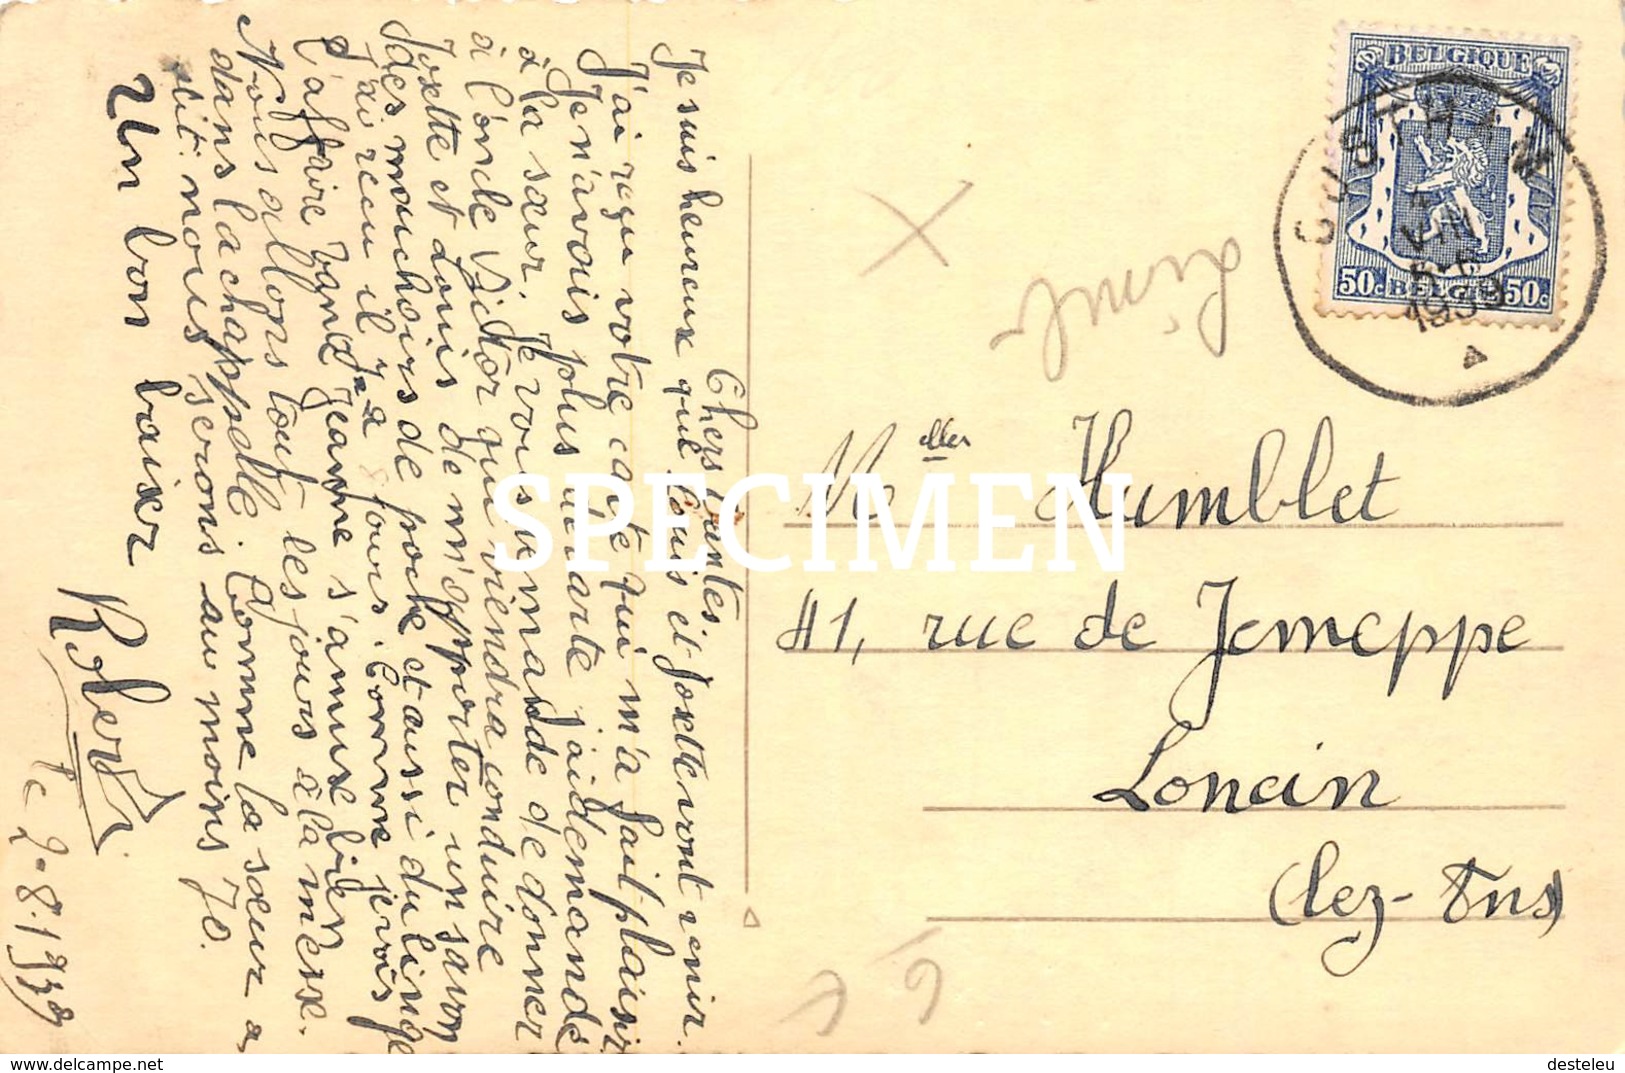 Chers Tantes.
Je suis heureux que Louis et Josette vont venir.
J'ai reçu votre carte qui m'a fait plaisir
Je n'avais plus de carte j'ai demandé
à la sœur. Je vous demande de donner
à l'oncle Victor qui viendra conduire
Josette et Louis de m'apporter un savon
des mouchoirs de poche et aussi du linge
J'ai reçu il y a 8 jours. Comme je vois
l'affaire Jeanne s'amuse bien
Nous allons tout les jours à la messe.
dans la chappelle. Comme la sœur a
dit. nous serons au moins 70.
Un bon baiser
Robert
le 2-8-1939
BELGIQUE
50c BELGIE 50c
CUSTINNE
1939
Melles Humblet
41, rue de Jemeppe
Loncin
(lez-Ans)
SPECIMEN
https://www.delcampe.net
desteleu